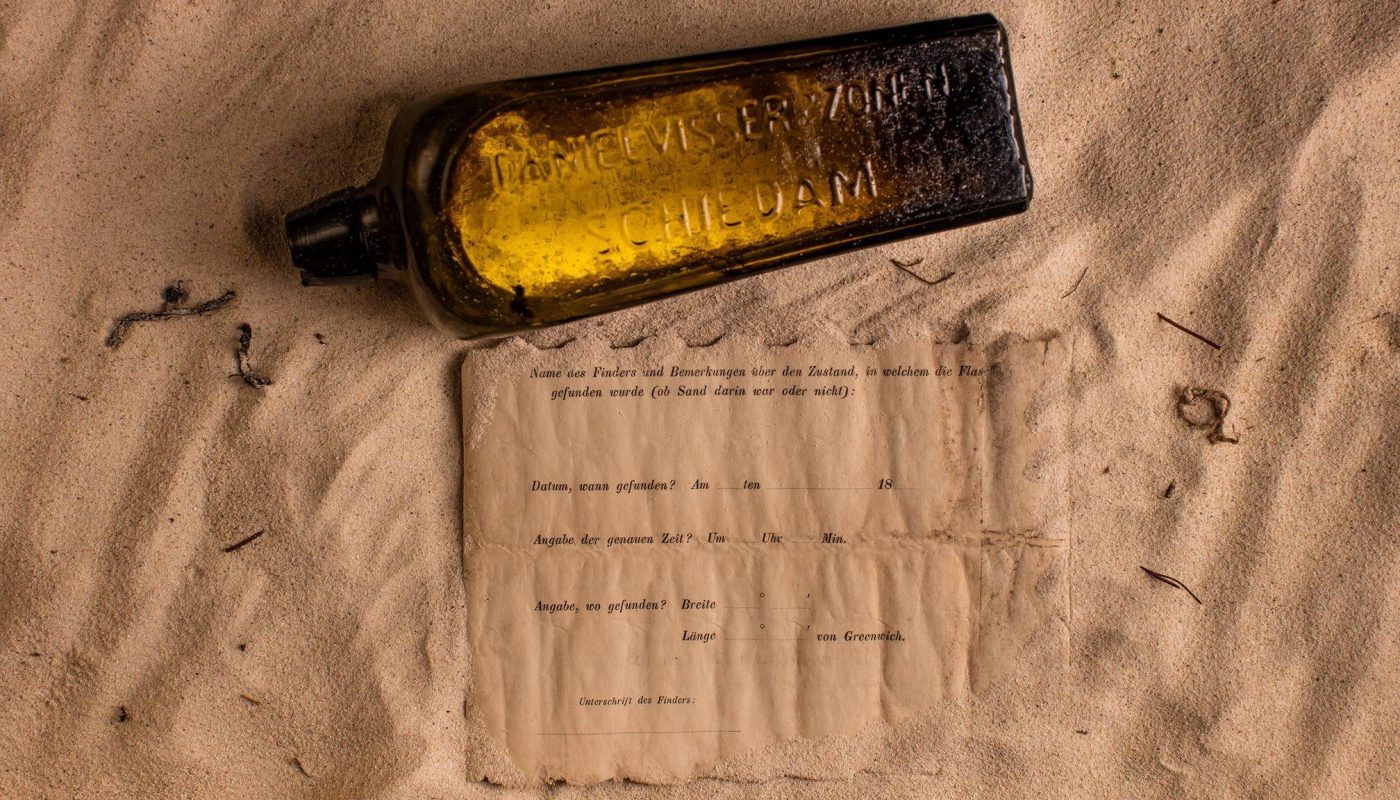 DANIEL VISSER & ZONEN
SCHIEDAM
Name des Finders und Bemerkungen über den Zustand, in welchem die
gefunden wurde (ob Sand darin war oder nicht):
Datum, wann gefunden? Am ten 18
Angabe der genauen Zeit? Um Uhr Min.
Angabe, wo gefunden? Breite ° ′
Länge ° ′ von Greenwich.
Unterschrift des Finders: